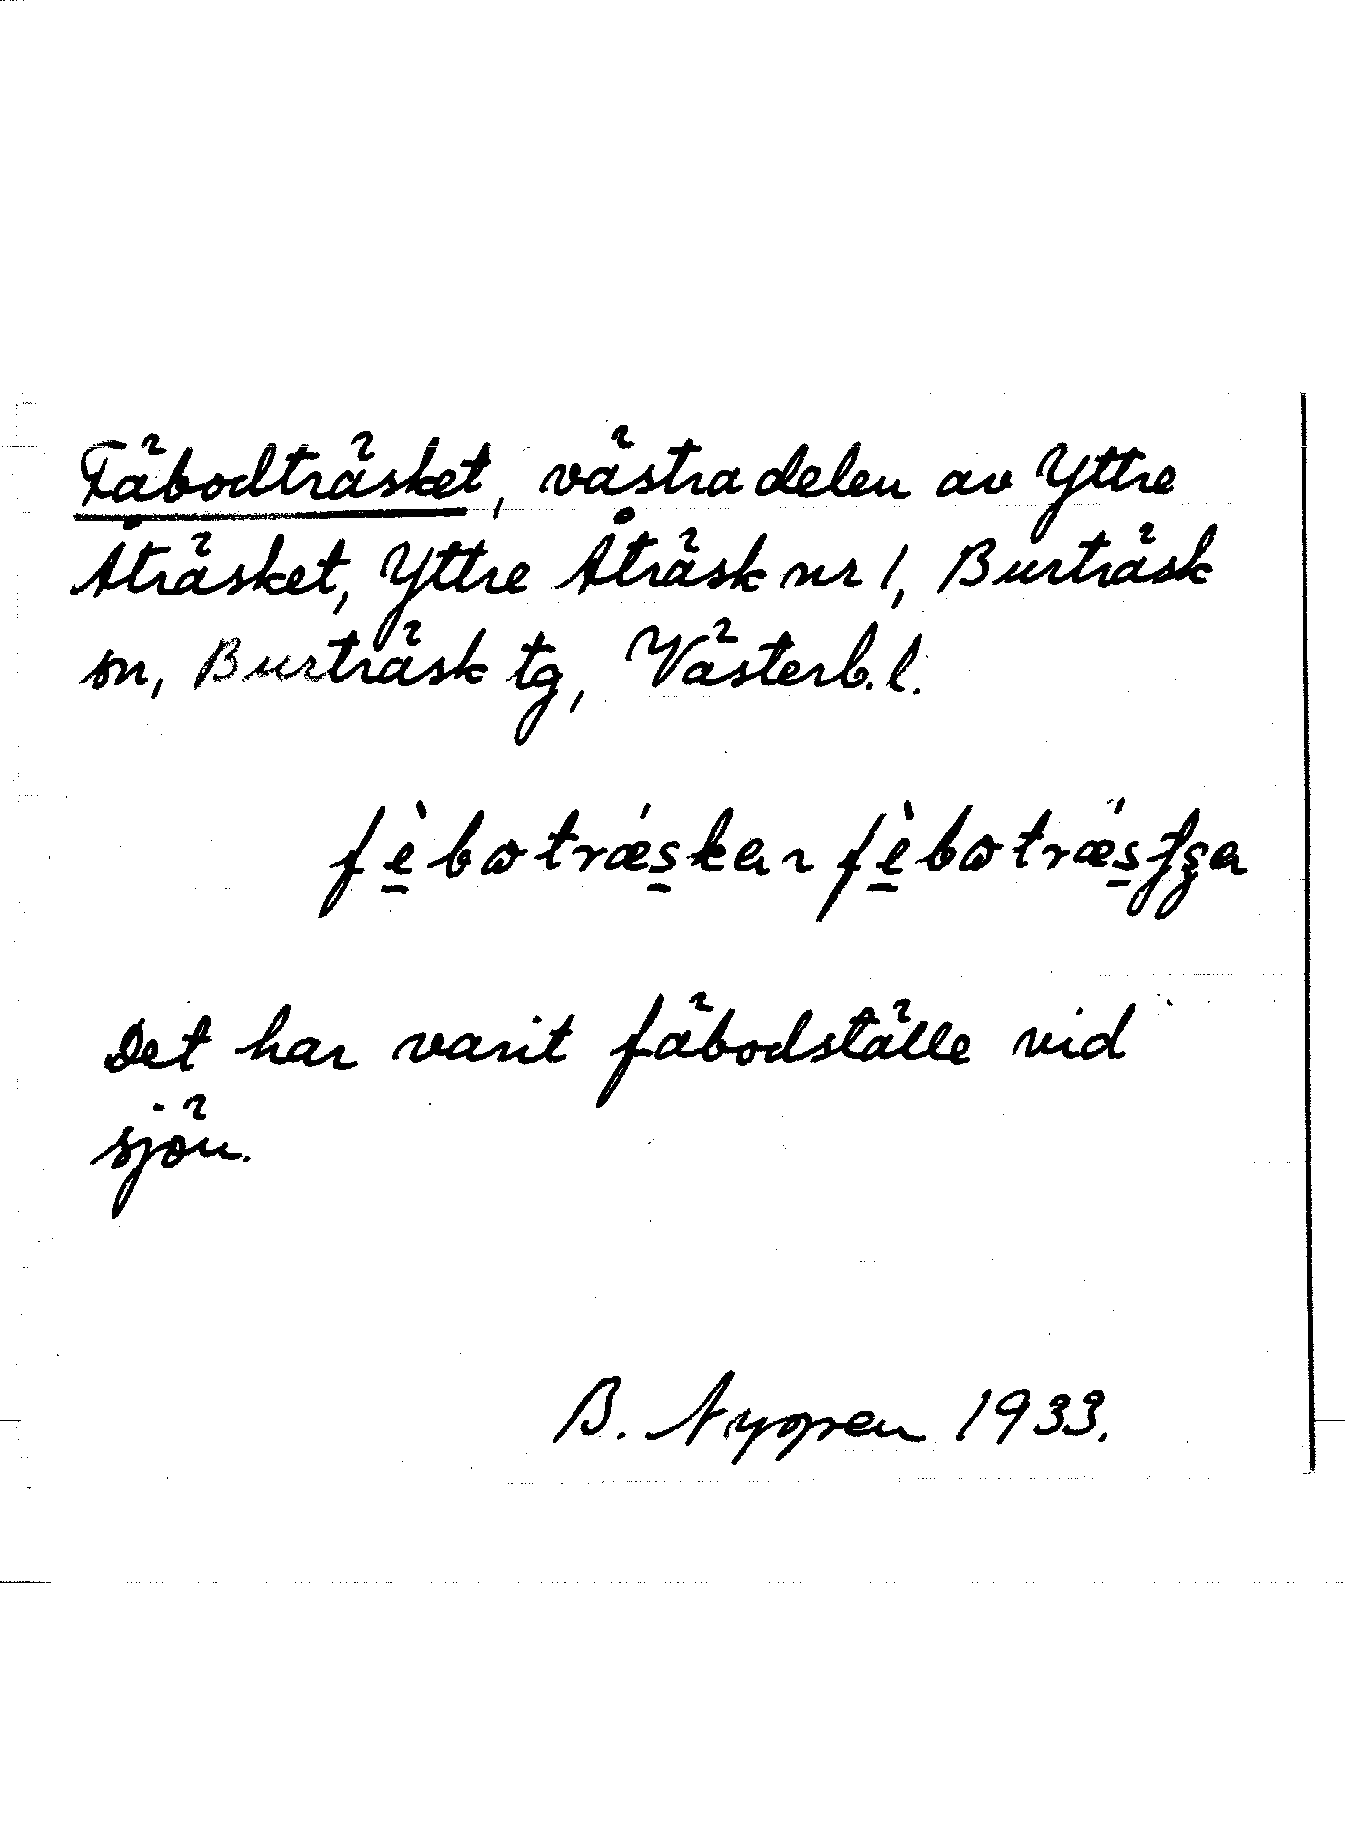 Fäbodträsket, västra delen av Yttre
Åträsket, Yttre Åträsk nr 1, Burträsk
sn, Burträsk tg, Västerb. l.
fè̠bωtrǽs̠ka ~ fè̠bωtrǽs̠ʃʂa
Det har varit fäbodställe vid
sjön.
B. Nygren 1933.